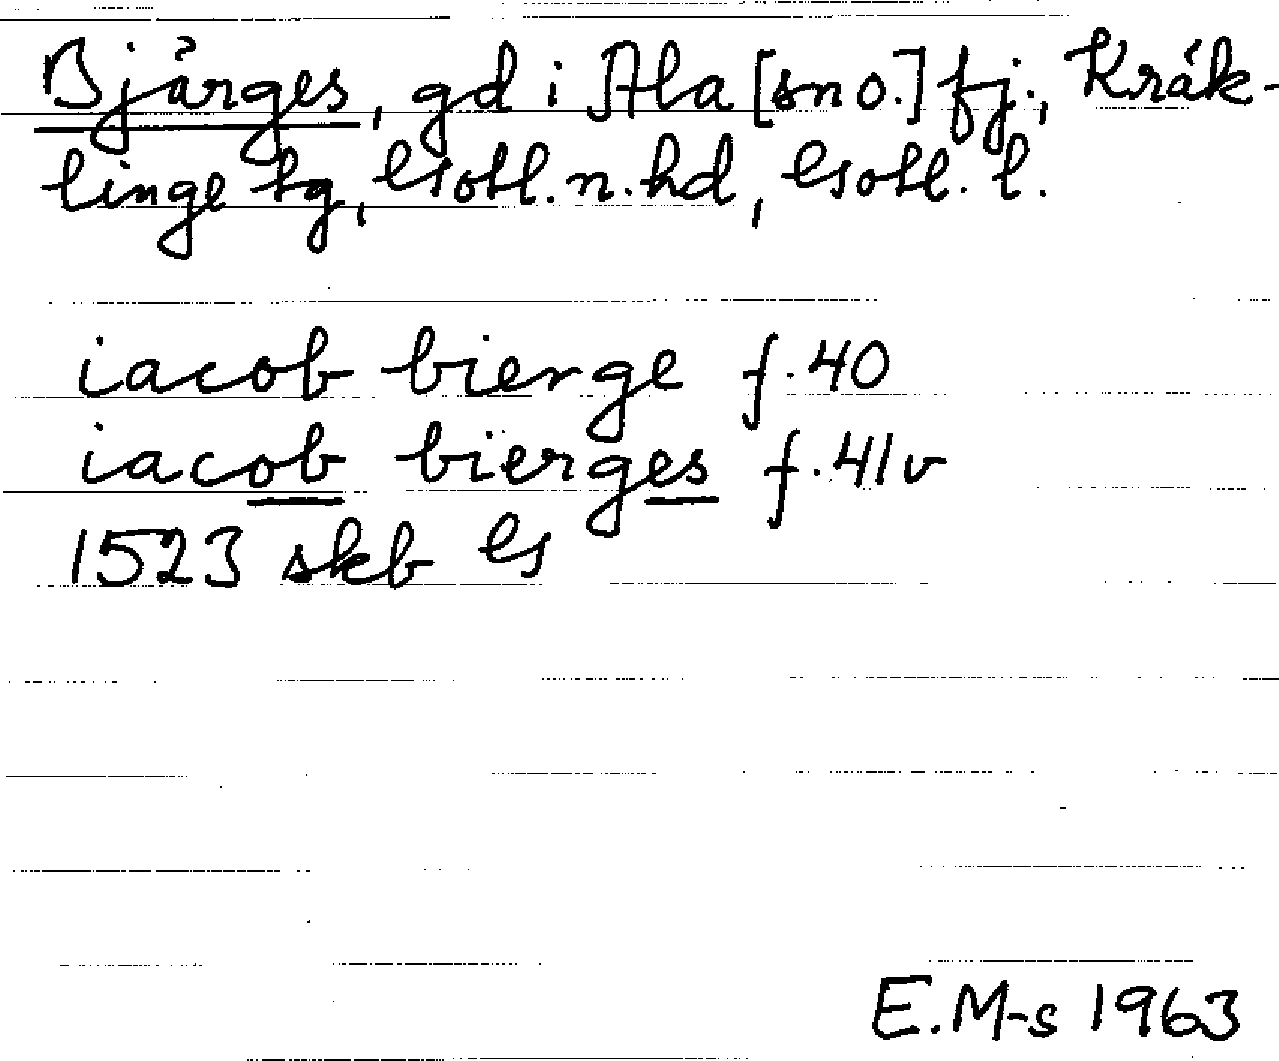 Bjärges, gd i Ala [sn o.] fj., Kräk-
linge tg, Gotl. n. hd, Gotl. l.
iacob bierge f. 40
iacob bierges f. 41v
1523 skb G
E.M-s 1963